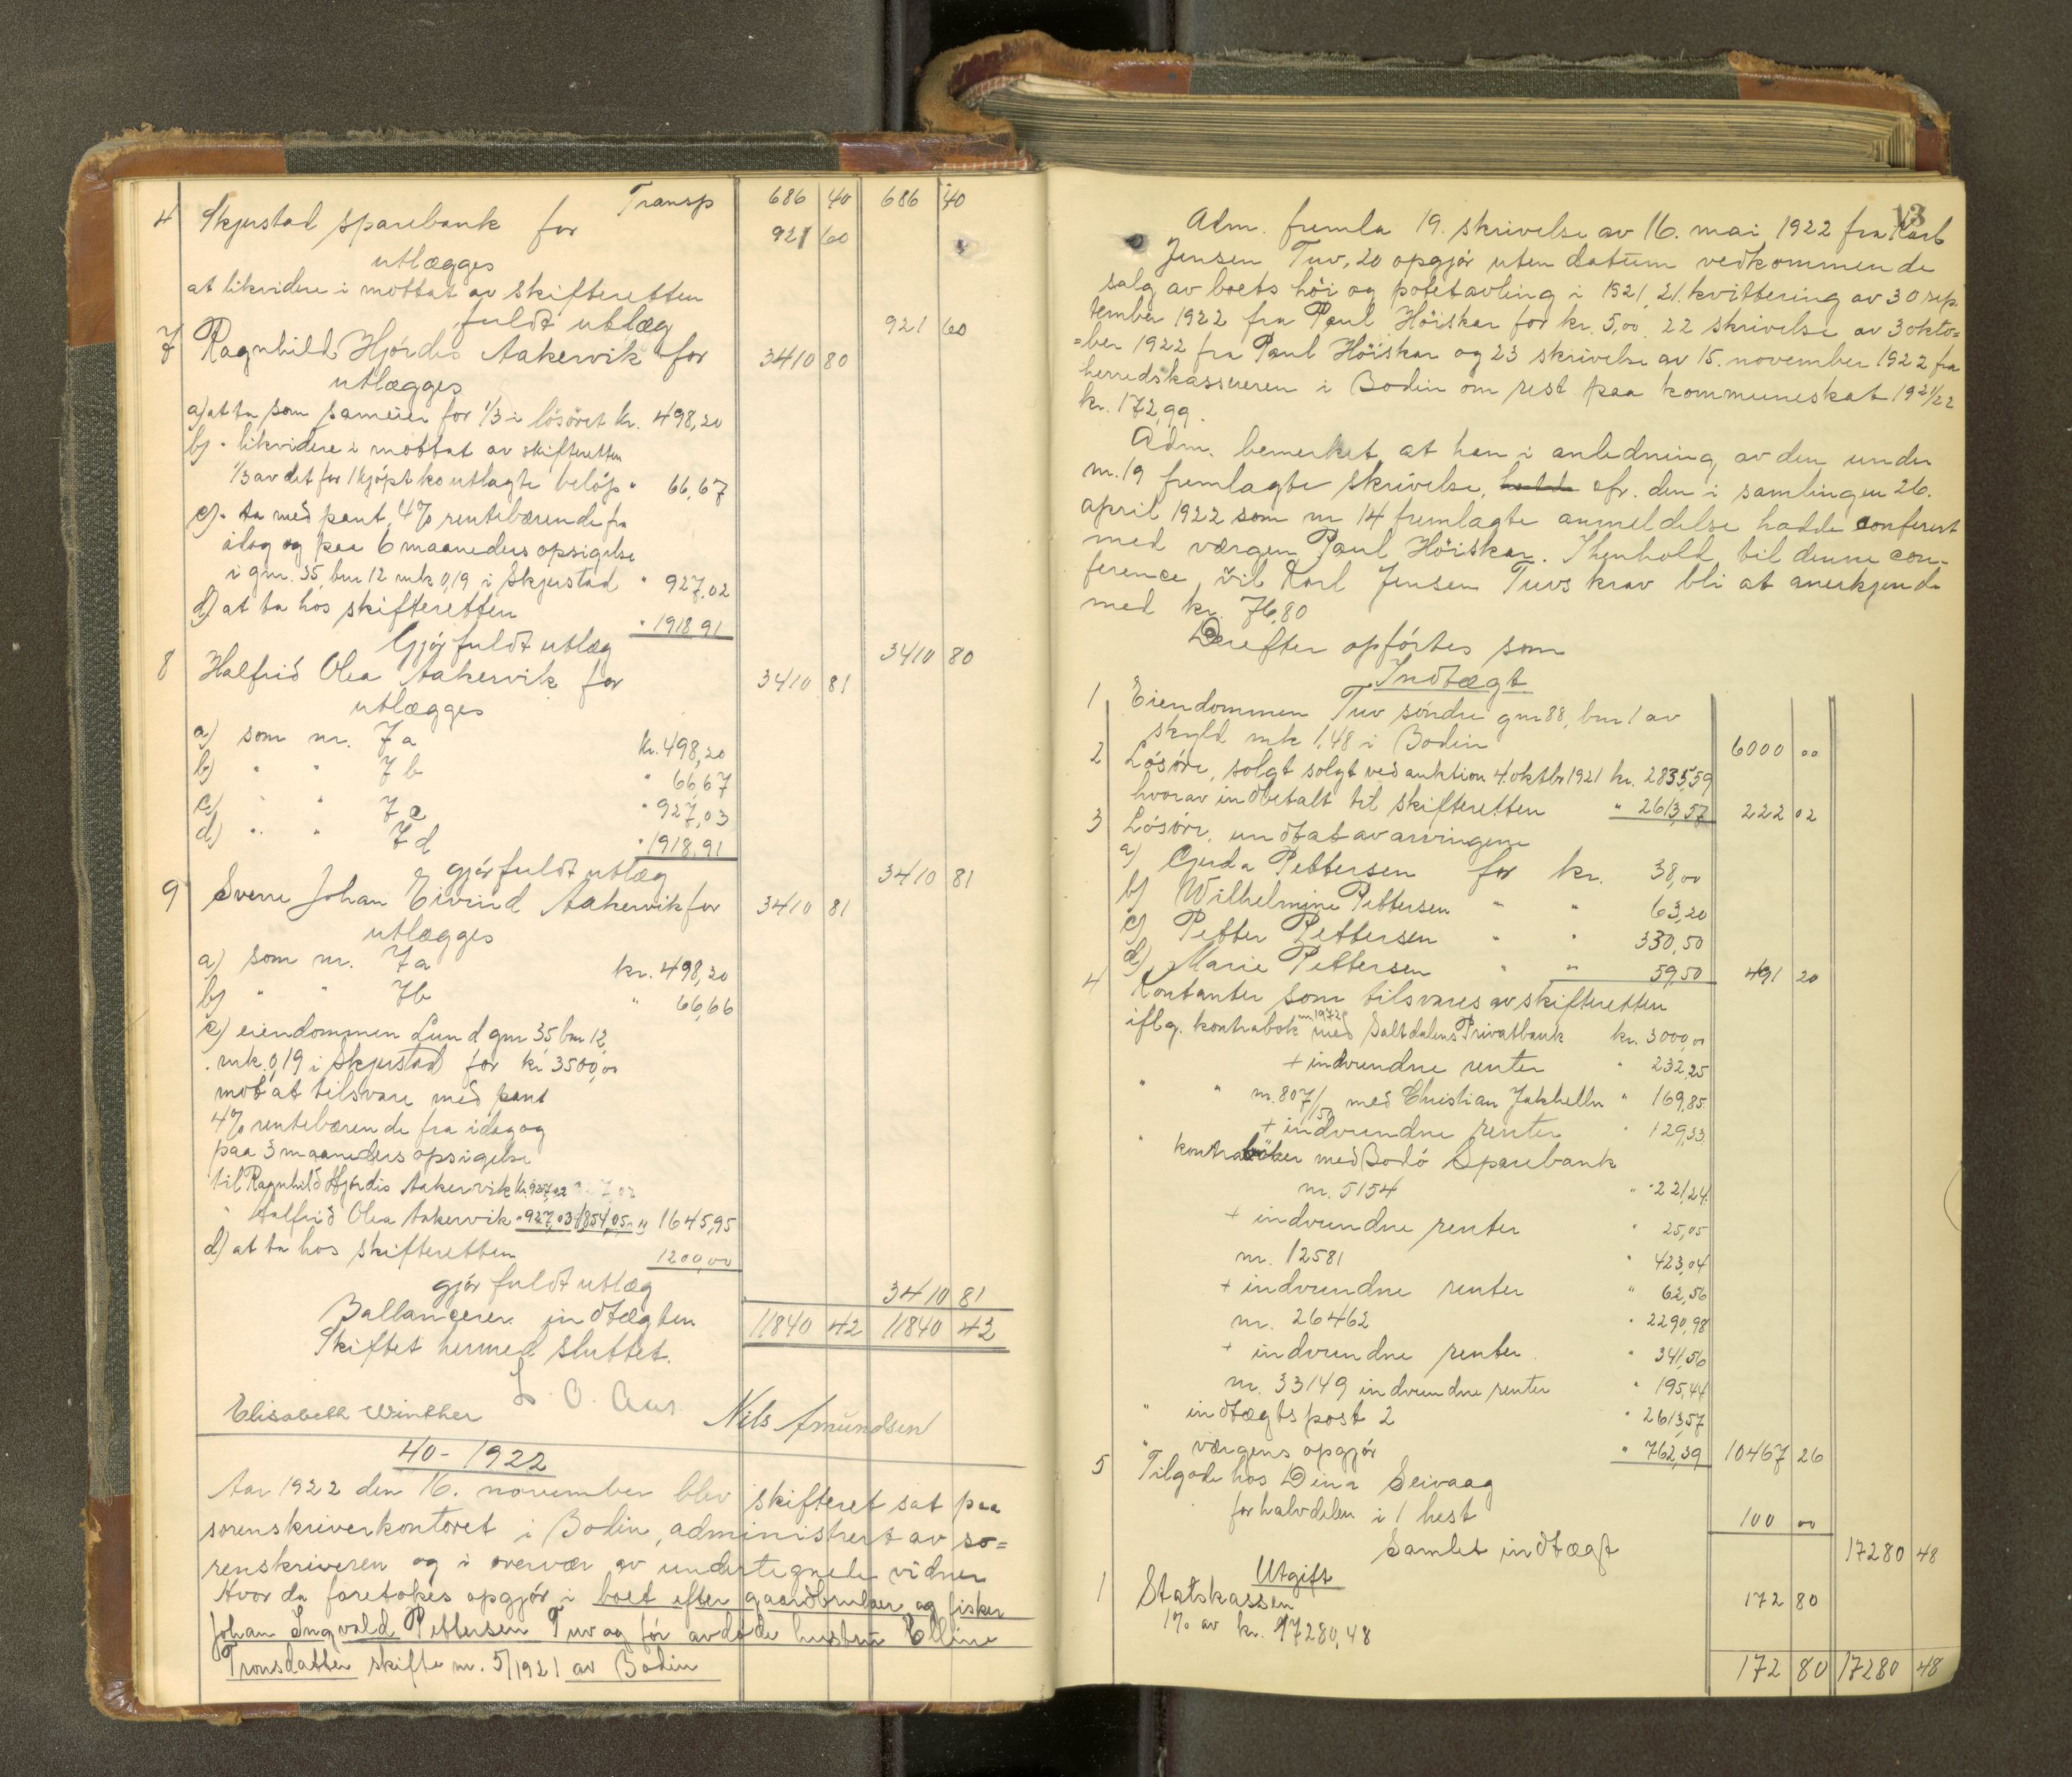 Transp 686 40 686 40
4 Skjerstad sparebank for 921 60
utlægges
at likvidere i mottat av skifteretten
fuldt utlæg 921 60
7 Ragnhild Hjørdis Aakervik for 3410 80
utlægges
a) at ta som sameier for 1/3 i løsøret kr. 498,20
b) " likvidere i mottat av skifteretten
1/3 av det for 1 kjøpt ko utlagte beløp " 66,67
c) " ta med pant, 4% rentebærende fra
idag og paa 6 maaneders opsigelse
i gnr. 35, bnr 12 mk 0,19 i Skjerstad " 927,02
d) at ta hos skifteretten " 1918,91
Gjør fuldt utlæg 3410 80
8 Halfrid Olea Aakervik for 3410 81
utlægges
a) som nr. 7a kr. 498,20
b) " " 7b " 66,67
c) " " 7c " 927,03
d) " " 7d " 1918,91
gjør fuldt utlæg 3410 81
9 Sverre Johan Eivind Aakervik for 3410 81
utlægges
a) som nr. 7a kr. 498,20
b) " " 7b " 66,66
c) eiendommen Lund gnr 35, bnr 12,
mk. 0,19 i Skjerstad for kr 3500,00
mot at tilsvare med pant
4% rentebærende fra idag og
paa 3 maaneders opsigelse
til Ragnhild Hjørdis Aakervik kr. 927,02
" Halfrid Olea Aakervik " 927,03 1854,05 " 1645,95
d) at ta hos skifteretten 1200,00
gjør fuldt utlæg 3410 81
Ballancerer indtægten 11840 42 11840 42
Skiftet hermed sluttet.
L. O. Aas.
Elisabeth Winther Nils Amundsen
40 - 1922
Aar 1922 den 16. november blev skifteret sat paa
sorenskriverkontoret i Bodin, administrert av so=
renskriveren og i overvær av undertegnede vidner
Hvor da foretokes opgjør i boet efter gaardbruker og fisker
Johan Ingvald Pettersen Tuv og før avdøde hustru Elline
Tronsdatter skifte nr. 5/1921 av Bodin
13
Adm. fremla 19. skrivelse av 16. mai 1922 fra Karl
Jensen Tuv, 20 opgjør uten datum vedkommende
salg av boets høi og potetavling i 1921, 21. kvittering av 30 sep
tember 1922 fra Paul Höiskar for kr. 5,00 22 skrivelse av 3 okto=
=ber 1922 fra Paul Höiskar og 23 skrivelse av 15. november 1922 fra
herredskassereren i Bodin om rest paa kommuneskat 1921/22
kr. 172,99.
Adm. bemerket at han i anledning av den under
nr. 19 fremlagte skrivelse, hadde cfr. den i samlingen 26.
april 1922 som nr 14 fremlagte anmeldelse hadde conferert
med værgen Paul Höiskar. I henhold til denne con-
ference, vil Karl Jensen Tuvs krav bli at anerkjende
med kr. 76,80
Derefter opførtes som
Indtægt
1 Eiendommen Tuv søndre gnr 88, bnr 1 av
skyld mk 1,48 i Bodin 6000 00
2 Løsøre, solgt solgt ved auktion 4. oktbr 1921 kr. 2835,59
hvorav indbetalt til skifteretten " 2613,57 222 02
3 Løsøre, undtat av arvingene
a) Gerda Pettersen for kr. 38,00
b) Wilhelmine Pettersen " " 63,20
c) Petter Pettersen " " 330,50
d) Marie Pettersen " " 59,50 491 20
4 Kontanter som tilsvares av skifteretten
iflg. kontrabok nr. 1972 med Saltdalens Privatbank kr. 3000,00
+ indvundne renter " 232,25
" " nr. 807/150 med Christian Jakhelln " 169,85
+ indvundne renter " 129,33
" kontrabøker med Bodø Sparebank
nr. 5154 " 221,24
+ indvundne renter " 25,05
nr. 12581 " 423,04
+ indvundne renter " 62,56
nr. 26462 " 2290,98
+ indvundne renter " 341,56
nr. 33149 indvundne renter " 195,44
" indtægtspost 2 " 2613,57
" værgens opgjør " 762,39 10467 26
5 Tilgode hos Dina Seivaag
for halvdelen i 1 hest 100 00
Samlet indtægt 17280 48
Utgift
1 Statskassen 172 80
1% av kr. 17280,48
172 80 17280 48